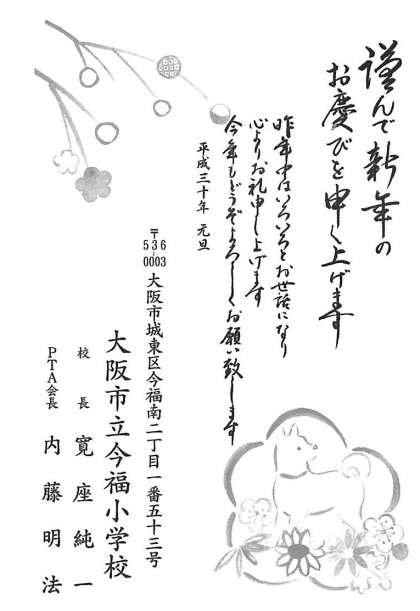 謹んで新年の
お慶びを申し上げます
昨年中はいろいろとお世話になり
心よりお礼申し上げます
今年もどうぞよろしくお願い致します
平成三十年 元旦
〒536-0003 大阪市城東区今福南二丁目一番五十三号
大阪市立今福小学校
校長 寛座純一
PTA会長 内藤明法